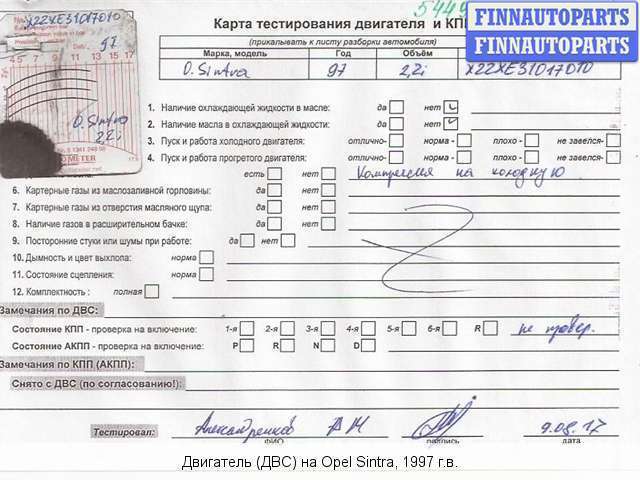 5449
FINNAUTOPARTS
FINNAUTOPARTS
Карта тестирования двигателя и КПП
(прикалывать к листу разборки автомобиля)
Марка, модель Год Объём
O. Sintra 97 2,2i X22XE31017010
X22XE31017010
97
O. Sintra
2,2i
1. Наличие охлаждающей жидкости в масле: да нет
2. Наличие масла в охлаждающей жидкости: да нет
3. Пуск и работа холодного двигателя: отлично- норма - плохо - не завелся-
4. Пуск и работа прогретого двигателя: отлично- норма - плохо - не завелся-
есть нет Компрессия на холодную
6. Картерные газы из маслозаливной горловины: да нет
7. Картерные газы из отверстия масляного щупа: да нет
8. Наличие газов в расширительном бачке: да нет
9. Посторонние стуки или шумы при работе: да нет
10. Дымность и цвет выхлопа: норма
11. Состояние сцепления: норма
12. Комплектность : полная
Замечания по ДВС:
Состояние КПП - проверка на включение: 1-я 2-я 3-я 4-я 5-я 6-я R не провер.
Состояние АКПП - проверка на включение: P R N D
Замечания по КПП (АКПП):
Снято с ДВС (по согласованию!):
Тестировал: Александренков А Н 9.08.17
ФИО подпись дата
Двигатель (ДВС) на Opel Sintra, 1997 г.в.